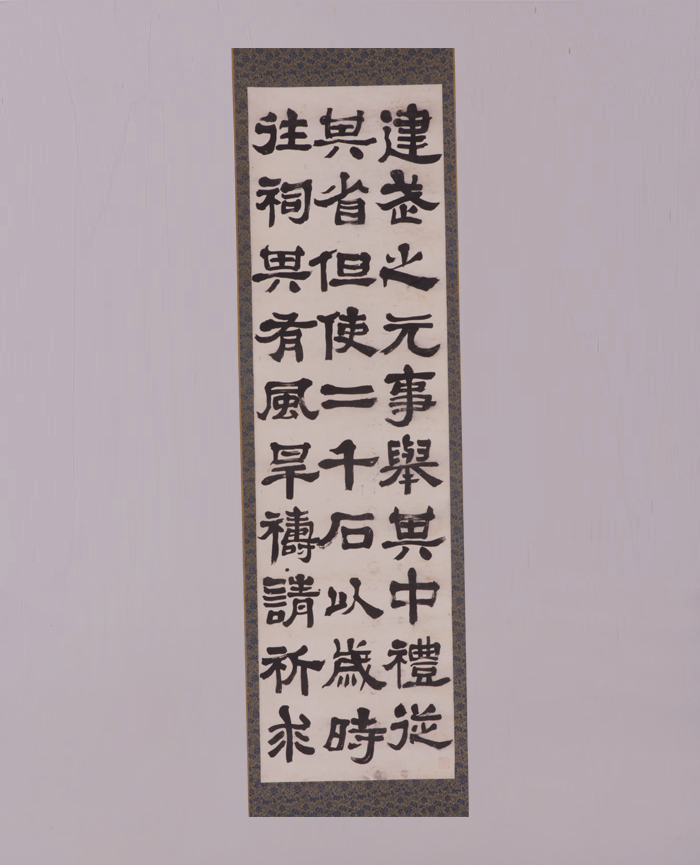 建武之元事舉其中禮從
其省但使二千石以歲時
往祠其有風旱禱請祈求